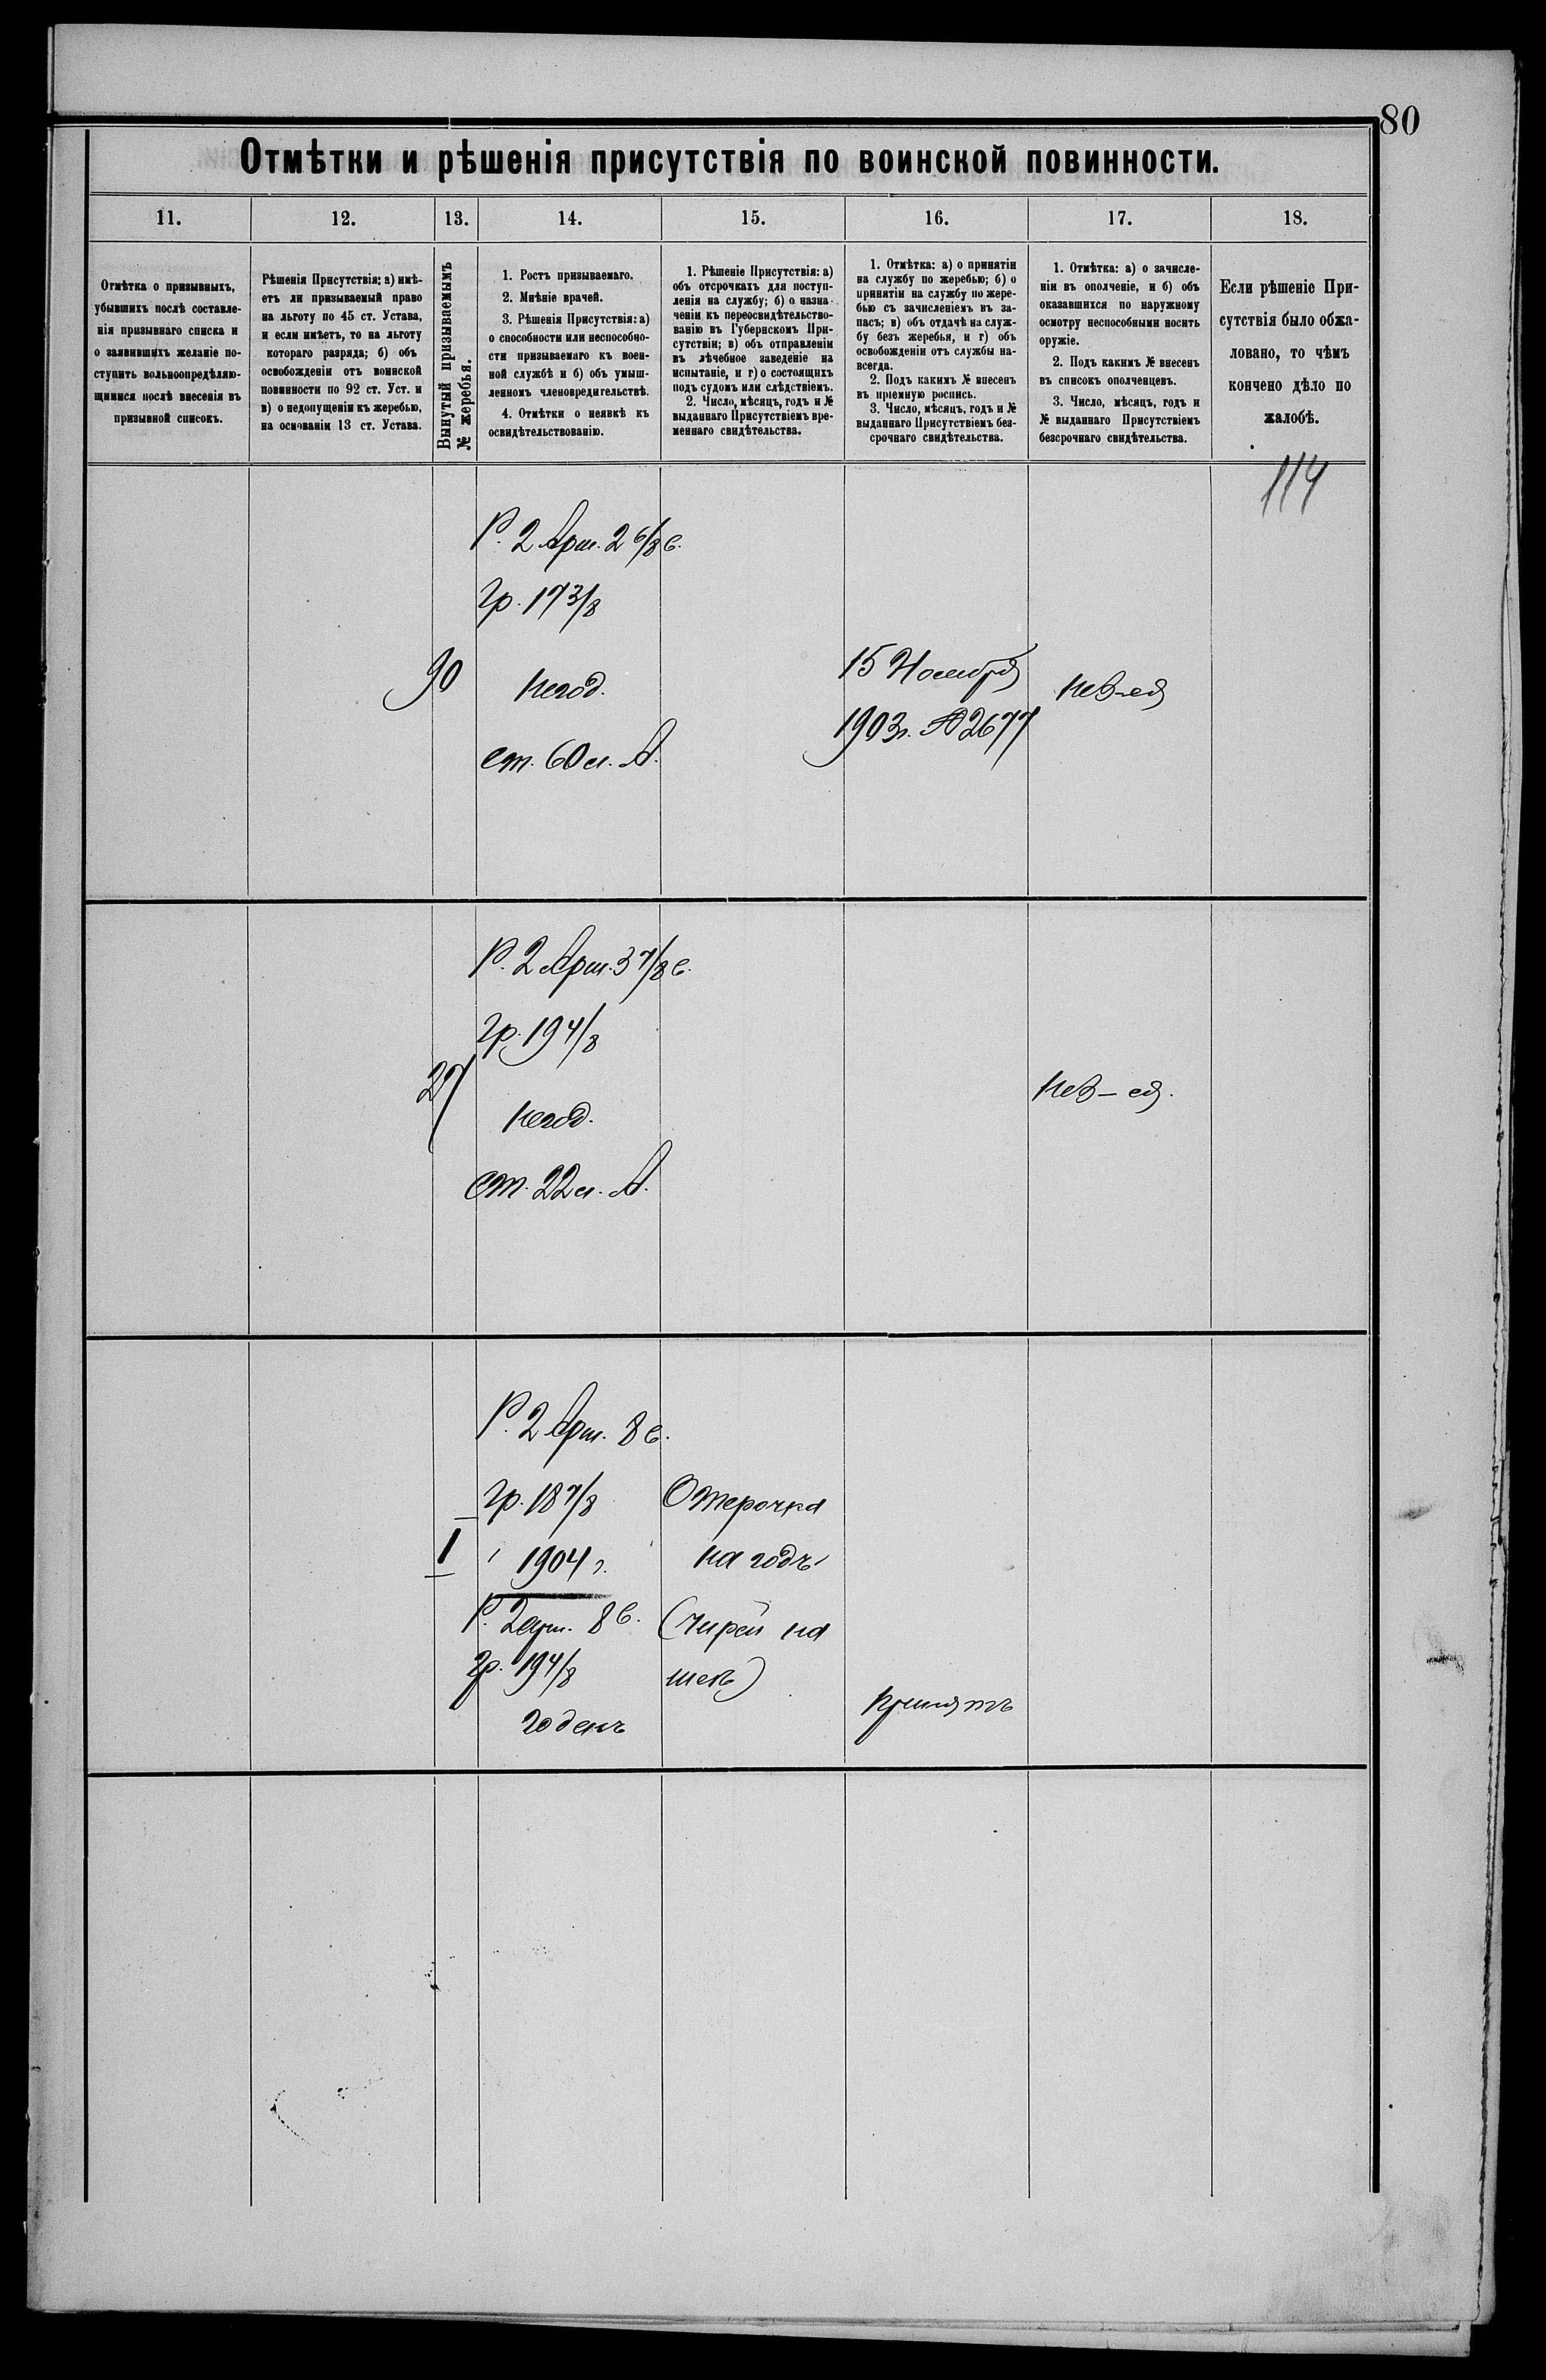 80
Отмѣтки и рѣшенія присутствія по воинской повинности.
11.
12.
13.
14.
15.
16.
17.
18.
Отмѣтка о призывныхъ,
убывшихъ послѣ составле-
нія призывнаго списка и
о заявившихъ желаніе по-
ступить вольноопредѣляю-
щимися послѣ внесенія въ
призывной списокъ.
Рѣшенія Присутствія: а) имѣ-
етъ ли призываемый право
на льготу по 45 ст. Устава,
и если имѣетъ, то на льготу
котораго разряда; б) объ
освобожденіи отъ воинской
повинности по 92 ст. Уст. и
в) о недопущеніи къ жеребью,
на основаніи 13 ст. Устава.
Вынутый призываемымъ
№ жеребья.
1. Ростъ призываемаго.
2. Мнѣніе врачей.
3. Рѣшенія Присутствія: а)
о способности или неспособно-
сти призываемаго къ воен-
ной службѣ и б) объ умыш-
ленномъ членовредительствѣ.
4. Отмѣтки о неявкѣ къ
освидѣтельствованію.
1. Рѣшеніе Присутствія: а)
объ отсрочкахъ для поступ-
ленія на службу; б) о назна-
ченіи къ переосвидѣтельство-
ванію въ Губернскомъ При-
сутствіи; в) объ отправленіи
въ лѣчебное заведеніе на
испытаніе, и г) о состоящихъ
подъ судомъ или слѣдствіемъ.
2. Число, мѣсяцъ, годъ и №
выданнаго Присутствіемъ вре-
меннаго свидѣтельства.
1. Отмѣтка: а) о принятіи
на службу по жеребью; б) о
принятіи на службу по жере-
бью съ зачисленіемъ въ за-
пасъ; в) объ отдачѣ на служ-
бу безъ жеребья, и г) объ
освобожденіи отъ службы на-
всегда.
2. Подъ какимъ № внесенъ
въ пріемную роспись.
3. Число, мѣсяцъ, годъ и №
выданнаго Присутствіемъ без-
срочнаго свидѣтельства.
1. Отмѣтка: а) о зачисле-
ніи въ ополченіе, и б) объ
оказавшихся по наружному
осмотру неспособными носить
оружіе.
2. Подъ какимъ № внесенъ
въ списокъ ополченцевъ.
3. Число, мѣсяцъ, годъ и
№ выданнаго Присутствіемъ
безсрочнаго свидѣтельства.
Если рѣшеніе При-
сутствія было обжа-
ловано, то чѣмъ
кончено дѣло по
жалобѣ.
114
Р. 2 Арш. 2 6/8 в.
гр. 17 3/8
90
негод.
ст. 60 л. А.
15 Ноября
1903 г. № 2677
Р. 2 Арш. 3 7/8 в.
гр. 19 4/8
27
негод.
ст. 22 л. А.
Р. 2 Арш. 8 в.
гр. 18 7/8
1
1904 г.
Р. 2 арш. 8 в.
гр. 19 4/8
годенъ
Отсрочка
на годъ
(чирей на
шеѣ)
принятъ